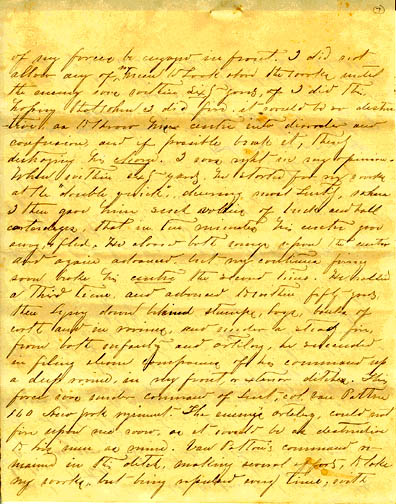 of my forces be engaged in front. I did not
allow any of my men to look above the works, under
the enemy were within sixty yards, of I did this
hoping that when I did fire, it would be so destruc
tive, as to throw their centre into disorder and
confusion, and if possible break it, thus
destroying his charge. I was right in my opinion.
When within sixty yards, he started for my works
at the "double quick", cheering most lustily, when
I then gave him such volleys of buck and ball
cartridges, that in ten minutes his centre gave
way & fled. He closed both wings upon the centre
and again advanced, but my continued firing
soon broke his centre the second time. He rallied
a third time, and advanced to within fifty yards,
then lying down behind stumps, logs, banks of
earth and in ravines, and under a steady fire,
from both infantry and artillery, he succeeded
in filing eleven companies of his command up
a deep ravine, in my front, or sixteen ditches. This
force was under command of Lieut. Col. Van Petten
160 New York regiment. The enemy's artillery, could not
fire upon me now, as it would be as destructive
to his men as mine. Van Petten's command re
mained in this ditch, making several efforts, to take
my works, but being repulsed every time, with